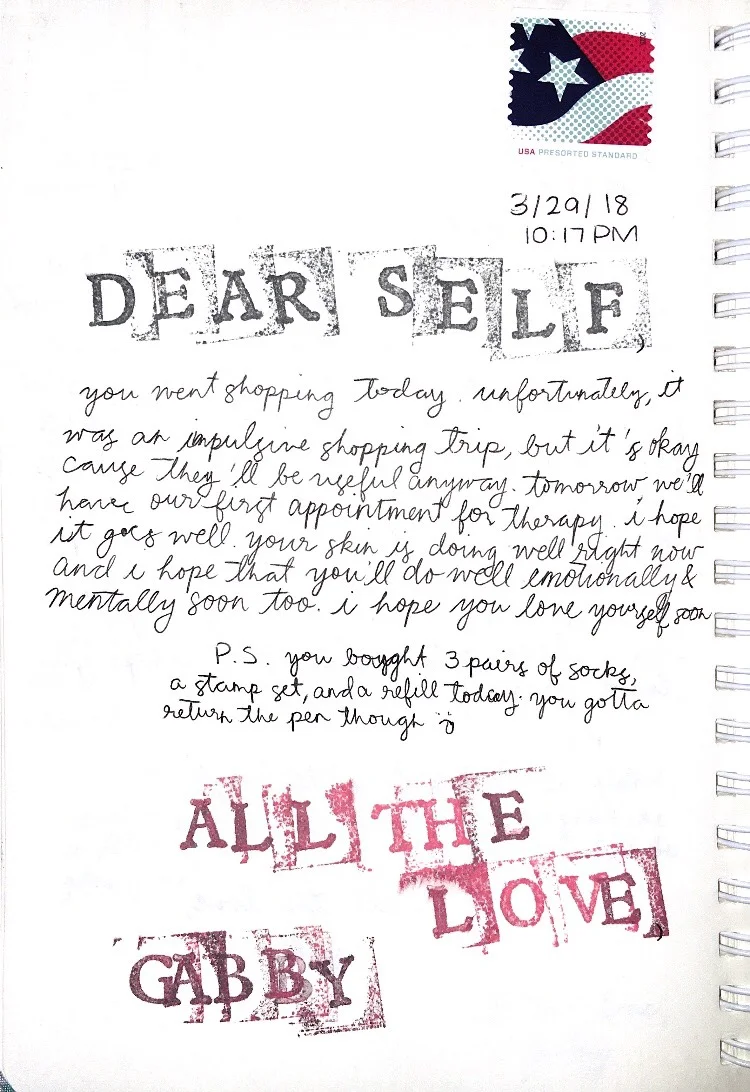 USA PRESORTED STANDARD
3/29/18
10:17 PM
DEAR SELF,
you went shopping today. unfortunately, it
was an impulsive shopping trip, but it's okay
cause they'll be useful anyway. tomorrow we'll
have our first appointment for therapy. i hope
it goes well. your skin is doing well right now
and i hope that you'll do well emotionally &
mentally soon too. i hope you love yourself soon
P.S. you bought 3 pairs of socks,
a stamp set, and a refill today. you gotta
return the pen though
ALL THE
LOVE,
GABBY